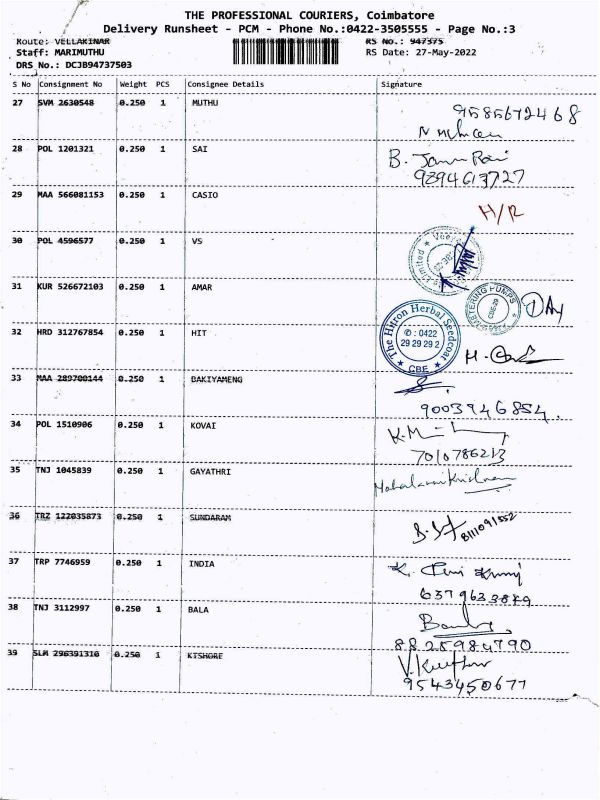 THE PROFESSIONAL COURIERS, Coimbatore
Delivery Runsheet - PCM - Phone No.:0422-3505555 - Page No.:3
Route: VELLAKINAR RS No.: 947375
Staff: MARIMUTHU RS Date: 27-May-2022
DRS No.: DCJB94737503
S No Consignment No Weight PCS Consignee Details Signature
27 SVM 2630548 0.250 1 MUTHU
9585672468
28 POL 1201321 0.250 1 SAI
9894613727
29 MAA 566081153 0.250 1 CASIO
H/R
30 POL 4596577 0.250 1 VS
31 KUR 526672103 0.250 1 AMAR
32 HRD 312767854 0.250 1 HIT
The Hitron Herbal Seedcoat
✆ : 0422
29 29 29 2
CBE
33 MAA 289700144 0.250 1 BAKIYAMENG
9003946854.
34 POL 1510906 0.250 1 KOVAI
K.M
7010786213
35 TNJ 1045839 0.250 1 GAYATHRI
36 TRZ 122035873 0.250 1 SUNDARAM
8111091552
37 TRP 7746959 0.250 1 INDIA
6379633849
38 TNJ 3112997 0.250 1 BALA
8825984790
39 SLM 296391310 0.250 1 KISHORE
9543450677